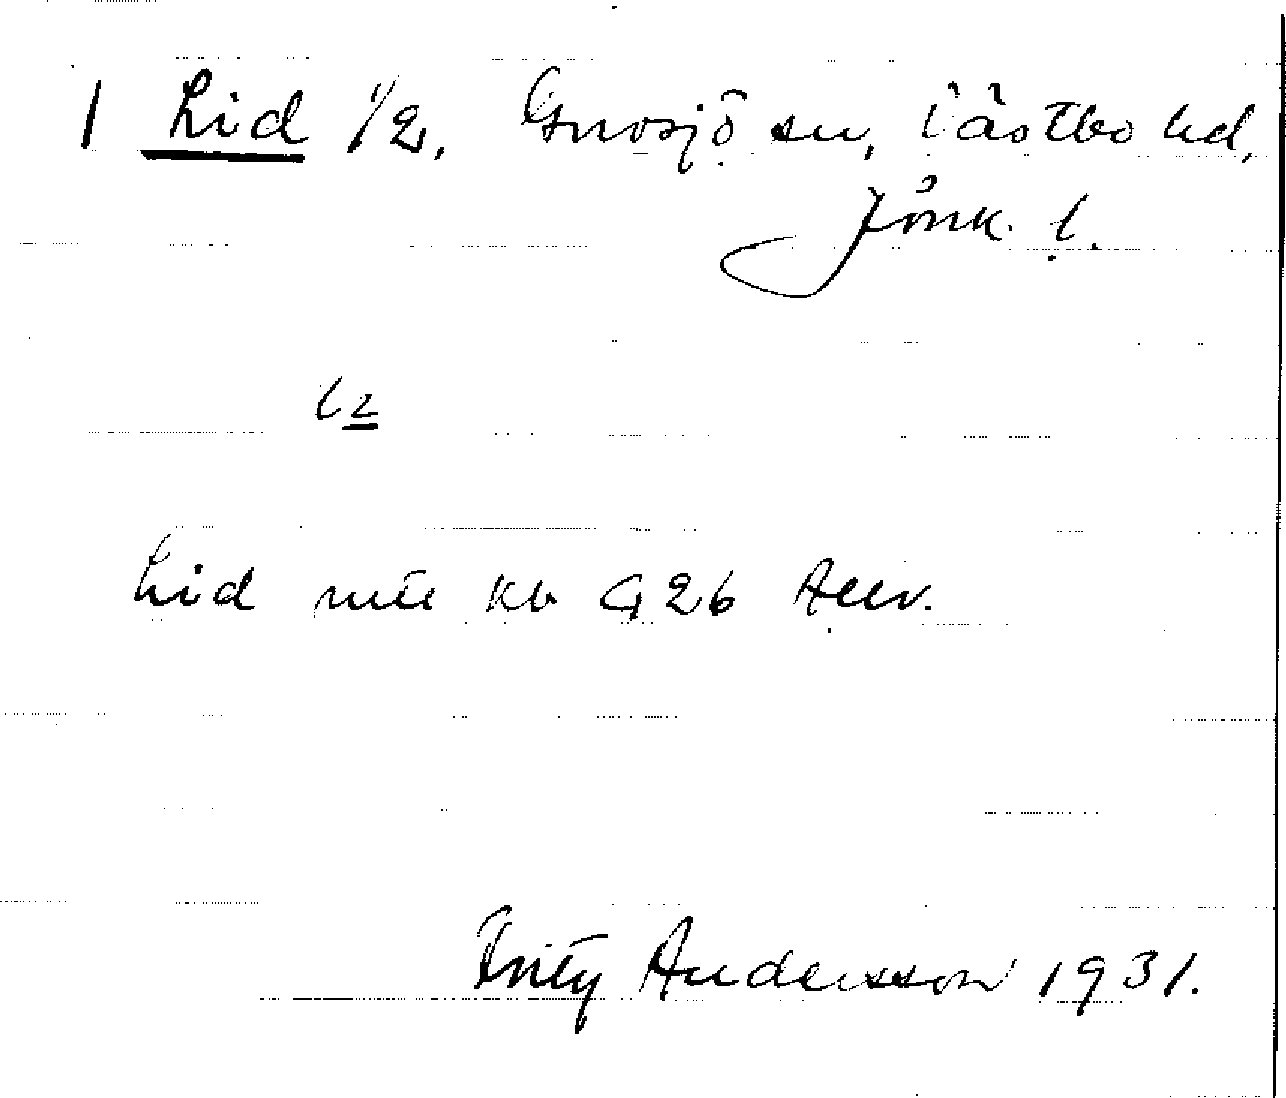 1 Lid 1/2, Gnosjö sn, Västbo hd,
Jönk. l.
l2
Lid mtl kb G 26 Allv.
Fritz Andersson 1931.